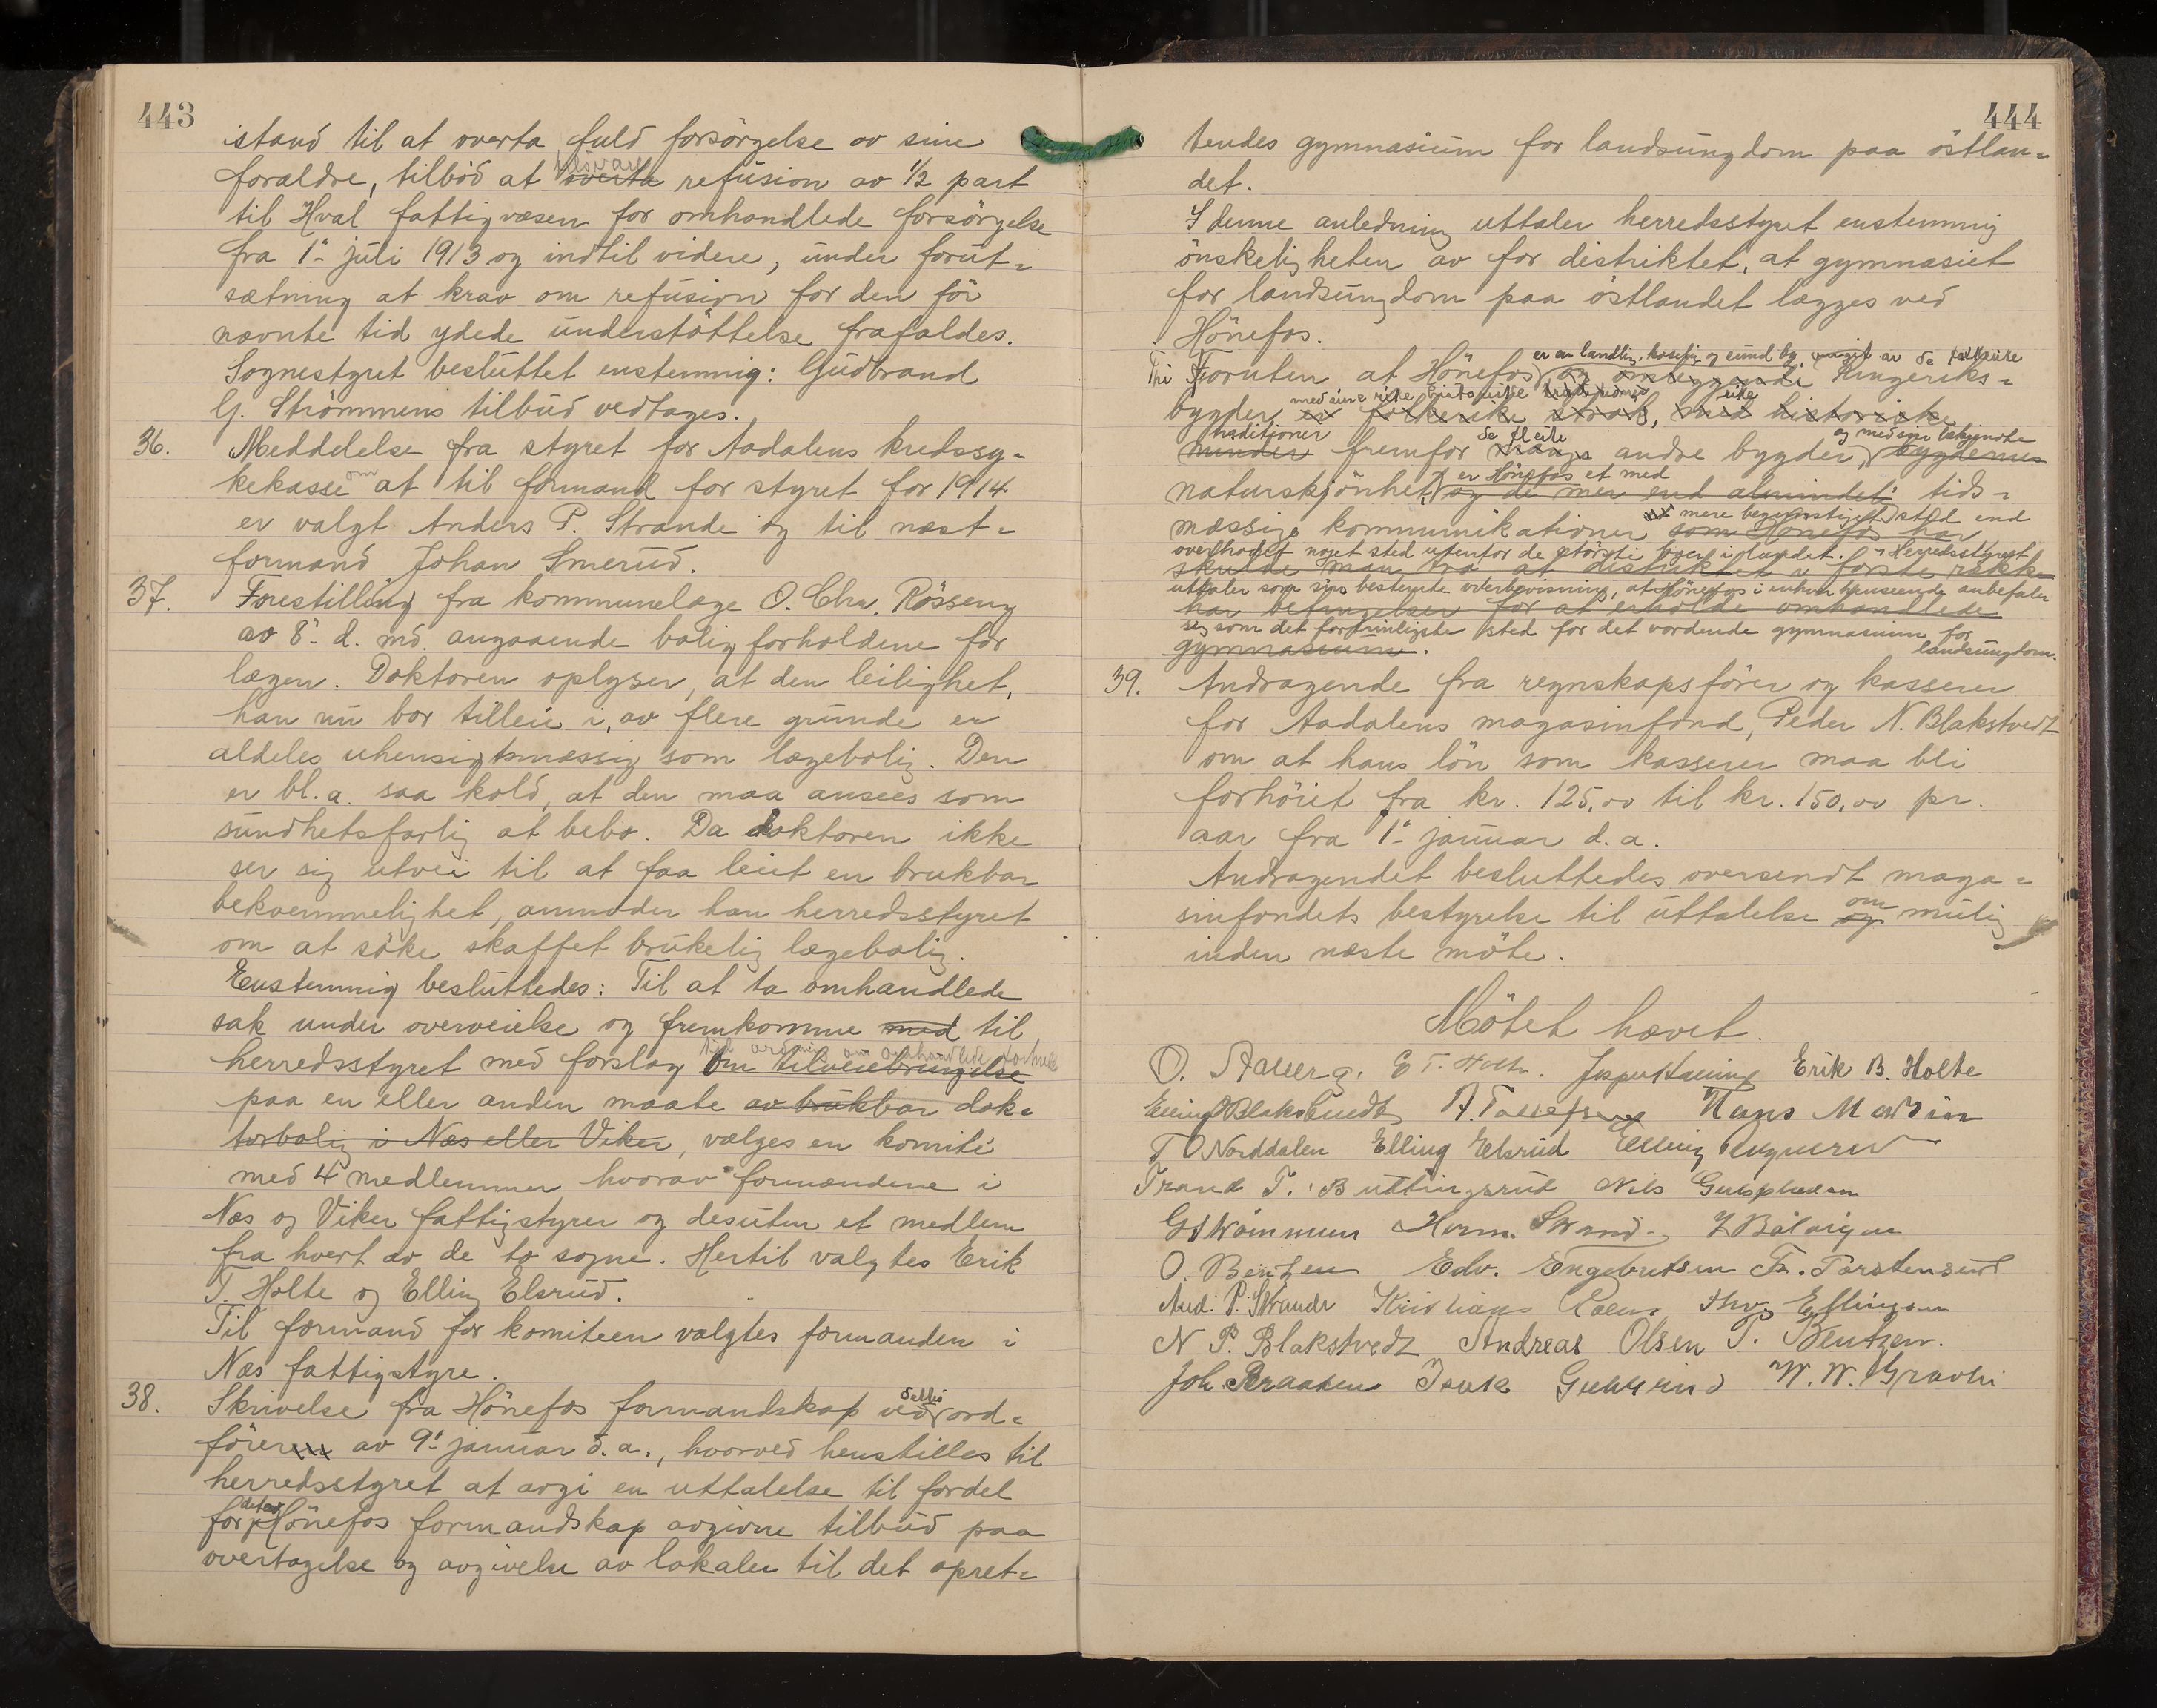 443
istand til at overta fuld forsörgelse av sine
tilsvare
foraldre, tilböd at overta refusion av 1/2 part
til Hval fattigvæsen for omhandlede forsörgelse
fra 1ª juli 1913 og indtil videre, under forut=
sætning at krav om refusion for den för
nævnte tid ydede understöttelse frafaldes.
Sognestyret besluttet enstemmig: Gudbrand
G. Strömmens tilbud vedtages.
36. Meddelelse fra styret for Aadalens kredssy=
kekasse om at til formand for styret for 1914
er valgt Anders P. Strande og til næst=
formand Johan Smerud.
37. Forestilling fra kommunelæge O. Chr. Rösseng
av 8ª d. md. angaaende boligforholdene for
lægen. Doktoren oplyser, at den leilighet,
han nu bor tilleie i, av flere grunde er
aldeles uhensigtsmæssig som lægebolig. Den
er bl. a. saa kold, at den maa ansees som
sundhetsfarlig at bebo. Da doktoren ikke
ser sig utvei til at faa leiet en brukbar
bekvemmelighet, anmoder han herredsstyret
om at söke skaffet brukelig lægebolig.
Enstemmig besluttedes: Til at ta omhandlede
sak under overveielse og fremkomme med til
til ordning om omhandlede forhold
herredsstyret med forslag om tilveiebringelse
paa en eller anden maate av brukbar dok=
torbolig i Næs eller Viker, vælges en komite
med 4 medlemmer hvorav formændene i
Næs og Viker fattigstyrer og desuten et medlem
fra hvert av de to sogne. Hertil valgtes Erik
T. Holte og Elling Elsrud.
Til formand for komiteen valgtes formanden i
Næs fattigstyre.
38. Skrivelse fra Hönefos formandskap ved ord=
föreren av 9ª januar d. a., hvorved henstilles til
herredsstyret at avgi en uttalelse til fordel
for det av Hönefos formandskap avgivne tilbud paa
overtagelse og avgivelse av lokaler til det opret=
444
tendes gymnasium for landsungdom paa östlan=
det.
I denne anledning uttaler herredsstyret enstemmig
önskeligheten av for distriktet, at gymnasiet
for landsungdom paa östlandet lægges ved
Hönefos.
er en landlig, koselig og sund by, av de
Foruten at Hönefos og omliggende Ringeriks=
med sine rike historiske
bygder er folkerike strök, med historiske
traditioner de fleste og med sin bekjendte
minder fremfor mange andre bygder, bygdernes
er Hönefos et med
naturskjönhet, og de mer end almindel: tids=
mere begunstiget sted end
mæssige kommunikationer som Hönefos har
overhodet noget sted utenfor de störste byer i landet. Herredsstyret
skulde man tro at distriktet i förste række
uttaler som sin bestemte overbevisning, at Hönefos i enhver henseende anbefaler
har betingelser for at erholde omhandlede
sig som det fortrinligste sted for det vordende gymnasium for
gymnasium. landsungdom.
39. Andragende fra regnskapsförer og kasserer
for Aadalens magasinfond, Peder N. Blakstvedt
om at hans lön som kasserer maa bli
forhöiet fra kr. 125,00 til kr. 150,00 pr.
aar fra 1ª januar d. a.
Andragendet besluttedes oversendt maga=
sinfondets bestyrelse til uttalelse og om mulig
inden næste möte.
Mötet hævet.
O. E T. Holte. Erik B. Holte
Elling Blakstvedt Hans Modin
T O Norddalen Elling Elsrud Elling
Trand T. Buttingsrud Nils Gulsplassen
G Strömmen Herm. Strand
O. Bentzen Edv. Engebretsen Fr. Torstensrud
And. P. Strande Kristians Thv. Ellingsen
N P. Blakstvedt Andreas Olsen P. Bentzen.
Joh. Braaten W. W. Gravli